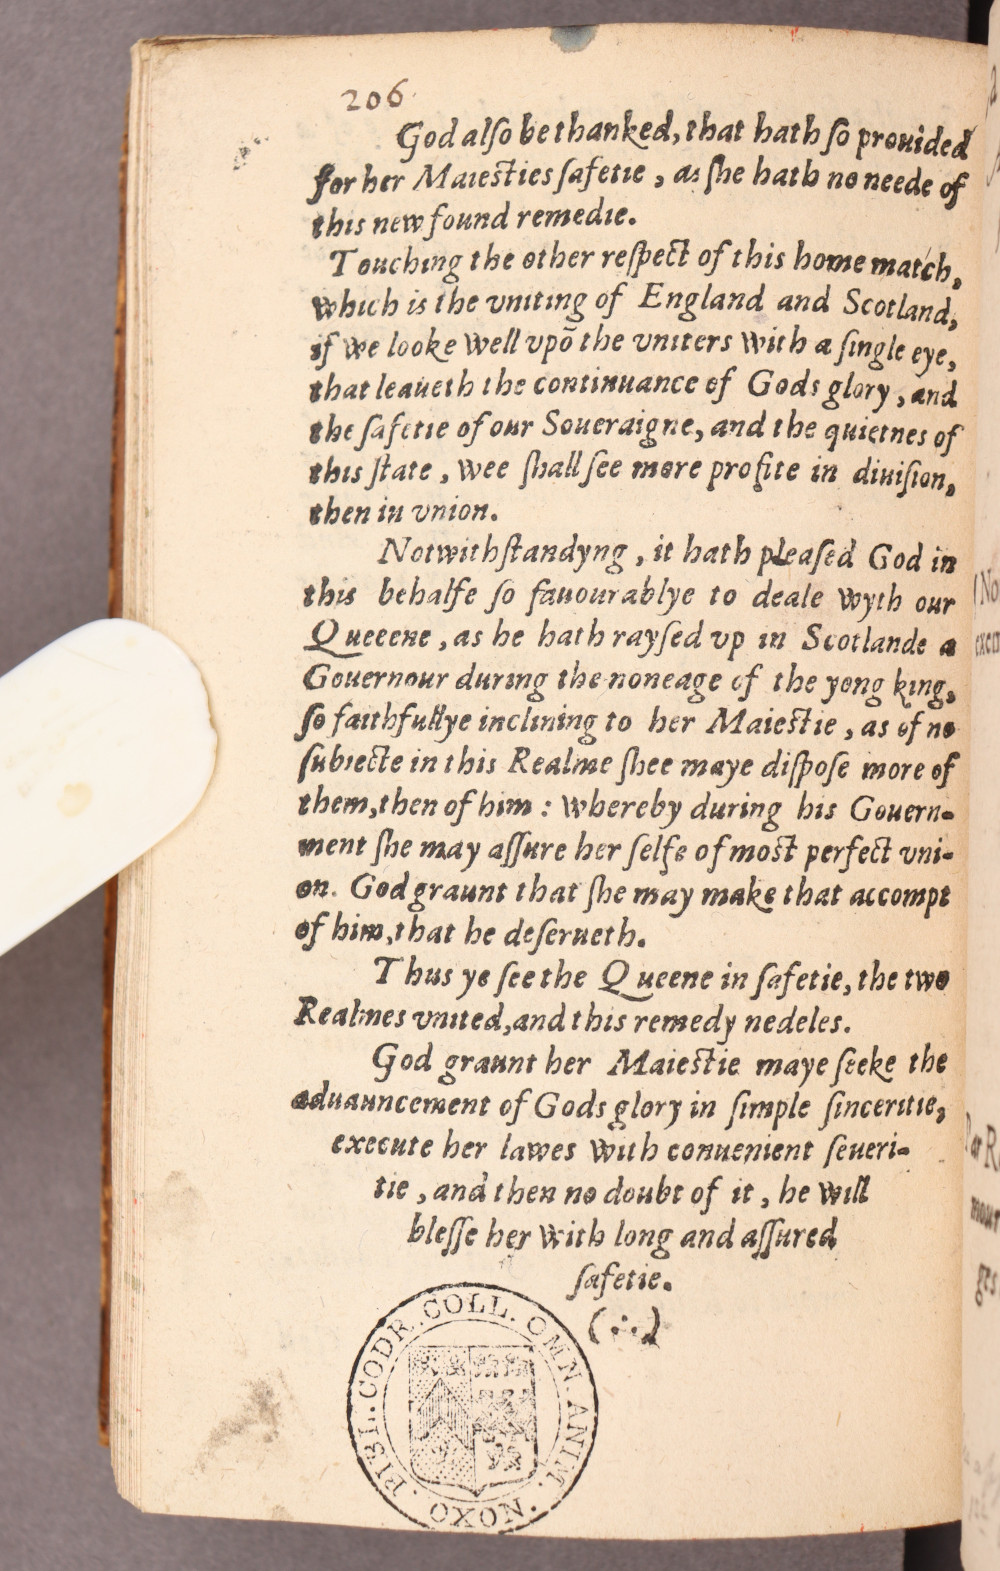 206
God alſo be thanked, that hath ſo prouided
for her Maieſties ſafetie, as ſhe hath no neede of
this new found remedie.
Touching the other reſpect of this home match,
which is the vniting of England and Scotland,
if we looke well vpõ the vniters with a ſingle eye,
that leaueth the continuance of Gods glory, and
the ſafetie of our Soueraigne, and the quietnes of
this ſtate, wee ſhall ſee more profite in diuiſion,
then in vnion.
Notwithſtandyng, it hath pleaſed God in
this behalfe ſo fauourablye to deale wyth our
Queeene, as he hath rayſed vp in Scotlande a
Gouernour during the noneage of the yong king,
ſo faithfullye inclining to her Maieſtie, as of no
ſubiecte in this Realme ſhee maye diſpoſe more of
them, then of him: whereby during his Gouern-
ment ſhe may aſſure her ſelfe of moſt perfect vni-
on. God graunt that ſhe may make that accompt
of him, that he deſerueth.
Thus ye ſee the Queene in ſafetie, the two
Realmes vnited, and this remedy nedeles.
God graunt her Maieſtie maye ſeeke the
aduauncement of Gods glory in ſimple ſinceritie,
execute her lawes with conuenient ſeueri-
tie, and then no doubt of it, he will
bleſſe her with long and aſſured
ſafetie.
(∴)
BIBL. CODR. COLL. OMN. ANIM. OXON.
No
exem
ges